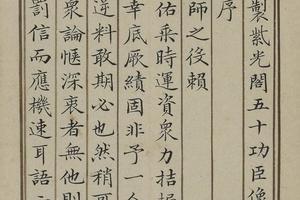 製紫光閣五十功臣像
序
師之役賴
佑乘時運資衆力拮据
幸底厥績固非予一人
逆料敢期必也然稍可
衆論愜深衷者無他則
罰信而應機速耳語